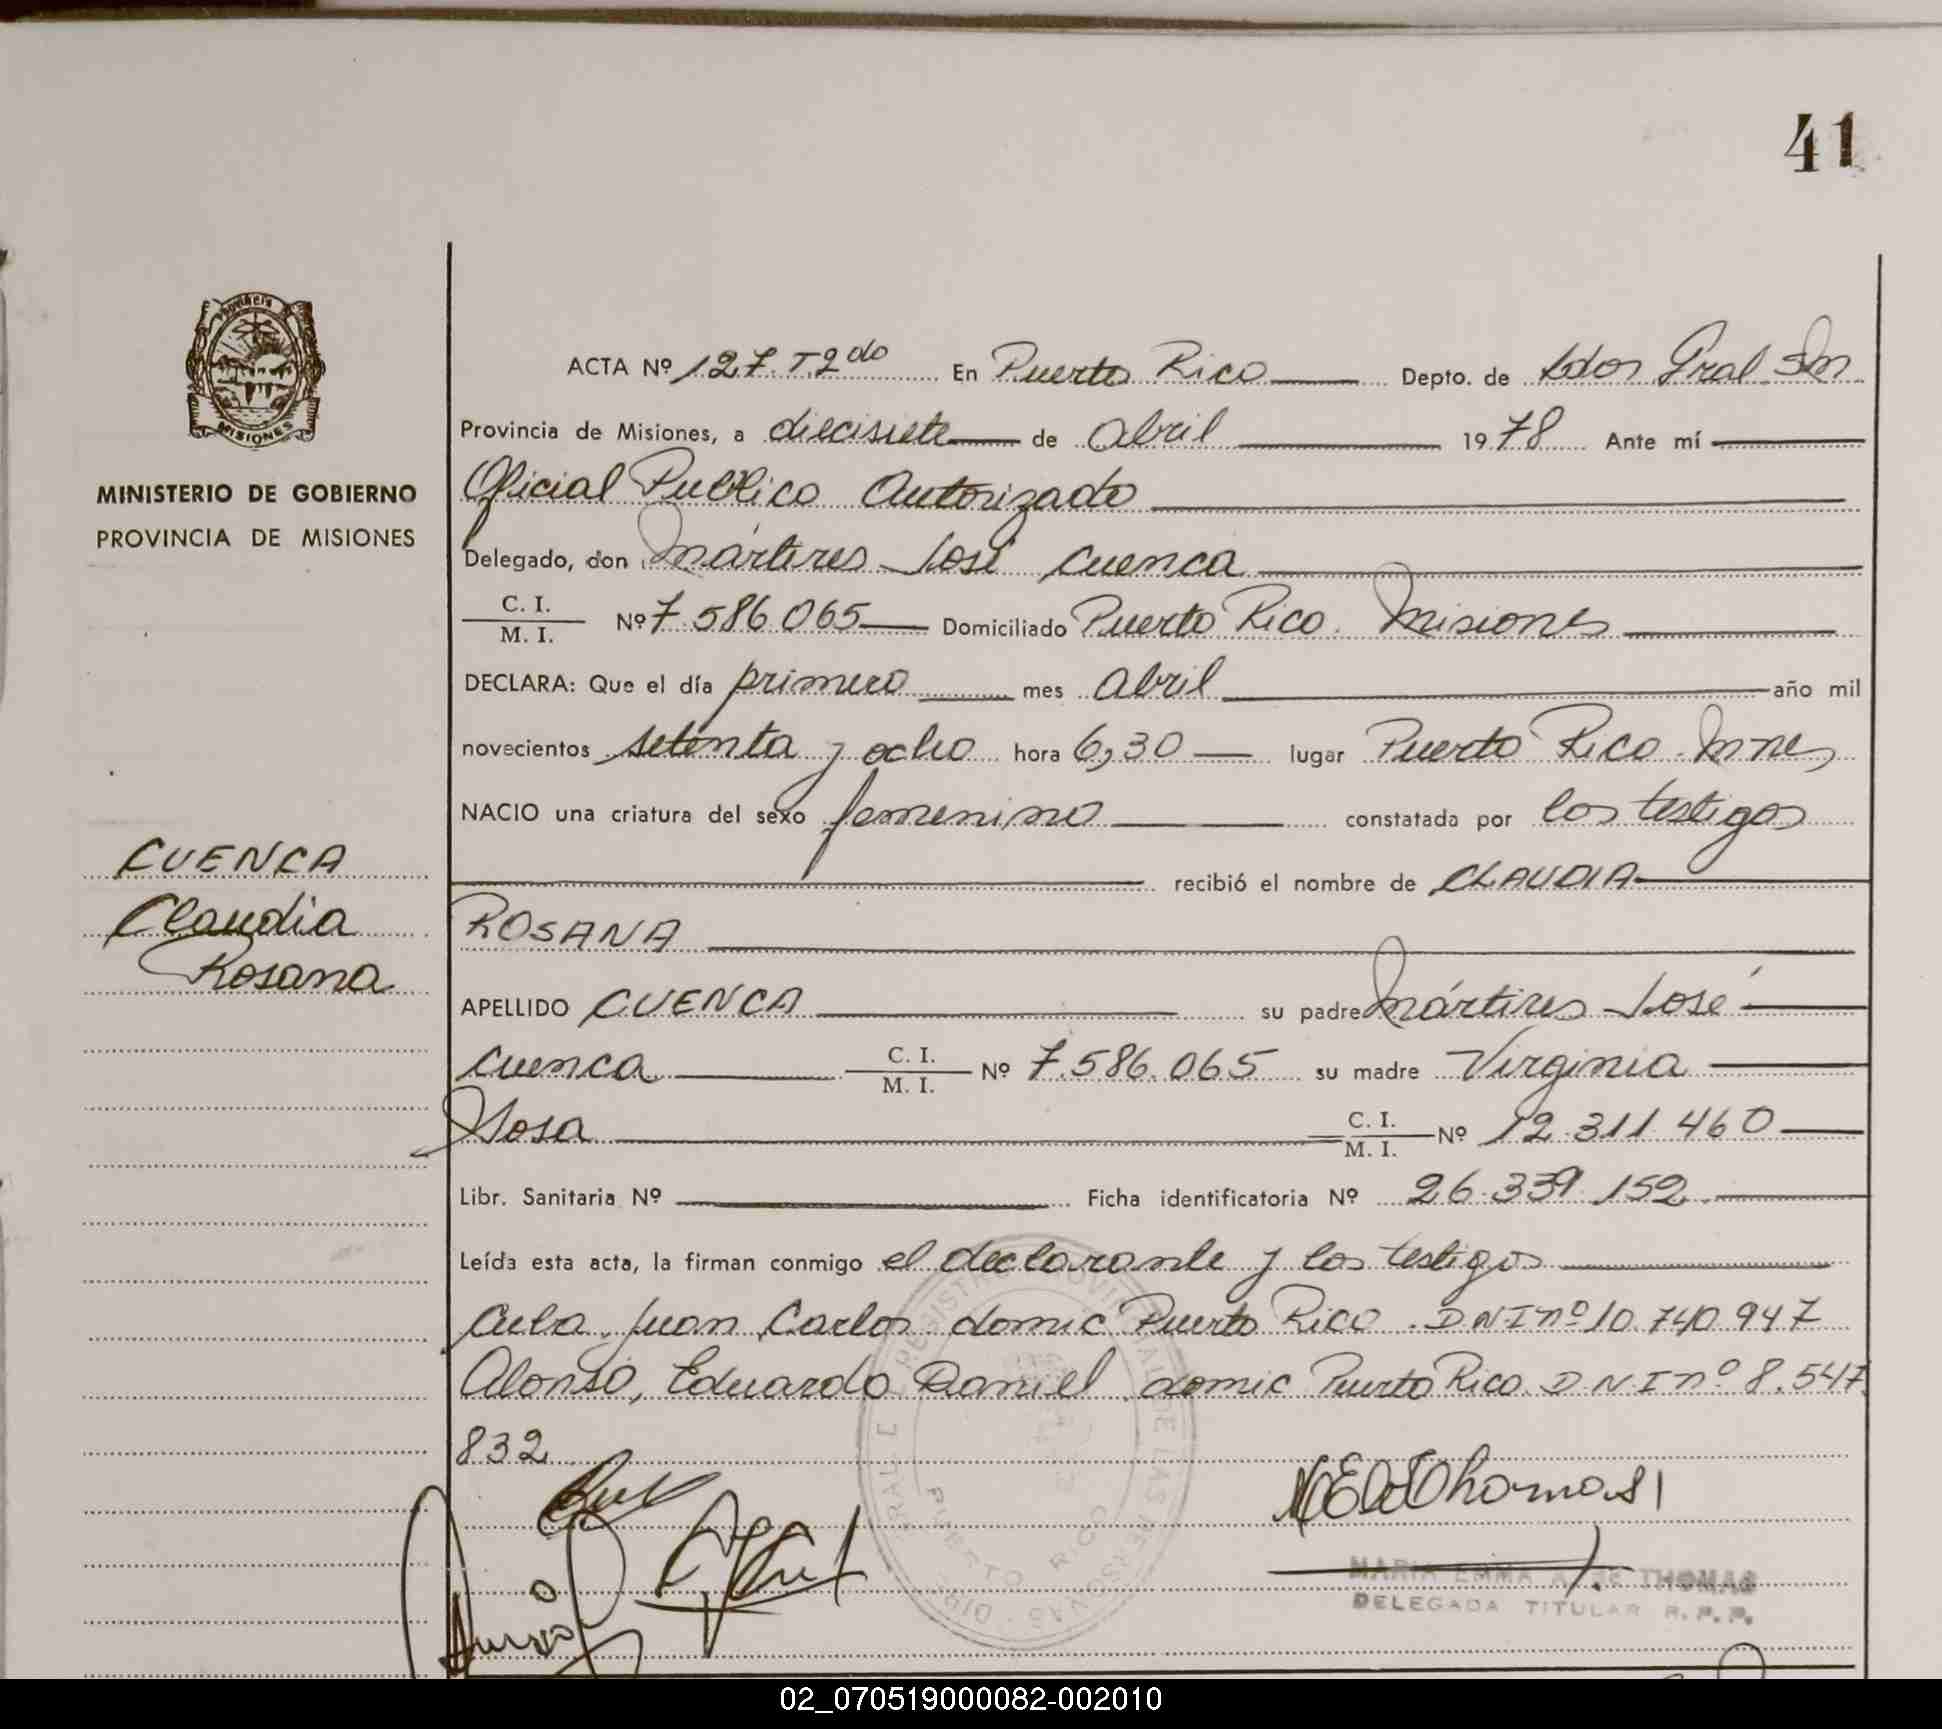 41
Provincia de
MISIONES
MINISTERIO DE GOBIERNO
PROVINCIA DE MISIONES
CUENCA
Claudia
Rosana
ACTA Nº 127. T. 2do En Puerto Rico Depto. de Ldor Gral Sm
Provincia de Misiones, a diecisiete de Abril 1978 Ante mí
Oficial Publico Autorizado
Delegado, don Mártires José Cuenca
C. I.
M. I. Nº 7.586.065 Domiciliado Puerto Rico. Misiones
DECLARA: Que el día primero mes Abril año mil
novecientos setenta y ocho hora 6,30 lugar Puerto Rico. Mnes
NACIO una criatura del sexo femenino constatada por los testigos
recibió el nombre de CLAUDIA
ROSANA
APELLIDO CUENCA su padre Mártires José
Cuenca C. I. M. I. Nº 7.586.065 su madre Virginia
Sosa C. I. M. I. Nº 12.311.460
Libr. Sanitaria Nº Ficha identificatoria Nº 26.339.152
Leída esta acta, la firman conmigo el declarante y los testigos
Juan Carlos domic Puerto Rico. DNI nº 10.740.947
Alonso, Eduardo Daniel, domic Puerto Rico. DNI nº 8.547.
832
MARIA EMMA A. DE THOMAS
DELEGADA TITULAR R. P. P.
PUERTO RICO
02_070519000082-002010